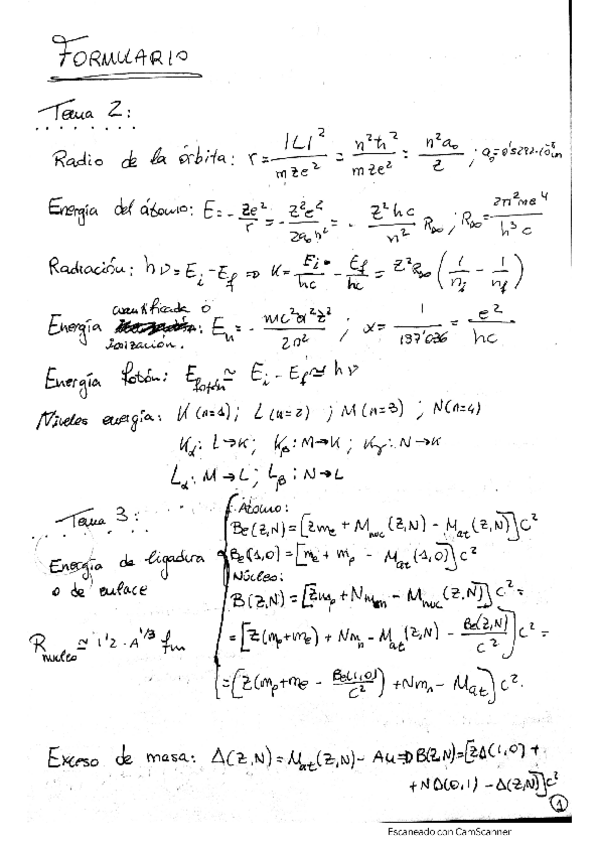 FORMULARIO
Tema 2:
Radio de la órbita: r = |L|² / mze² = n²ħ² / mze² = n²a₀ / Z ; a₀ = 0'5292·10⁻⁸ cm
Energía del átomo: E = - Ze²/r = - Z²e² / 2a₀n² = - Z²hc / n² R∞ ; R∞ = 2π²me⁴ / h³c
Radiación: hν = Ei - Ef ⇒ K = Ei/hc - Ef/hc = Z²R∞ (1/ni - 1/nf)
cuantificada o
Energía ionización: En = - mc²α²z² / 2n² ; α = 1 / 137'036 = e² / hc
Energía fotón: Efotón ≃ Ei - Ef ≃ hν
Niveles energía: K (n=1) ; L (n=2) ; M (n=3) ; N (n=4)
Kα: L→K ; Kβ: M→K ; Kγ: N→K
Lα: M→L ; Lβ: N→L
Tema 3:
Átomo:
Be(Z,N) = [Zme + Mnuc(Z,N) - Mat(Z,N)]c²
Energía de ligadura
o de enlace
Be(1,0) = [me + mp - Mat(1,0)]c²
Núcleo:
B(Z,N) = [Zmp + Nmn - Mnuc(Z,N)]c² =
Rnucleo ≃ 1'2 · A^1/3 fm
= [Z(mp+me) + Nmn - Mat(Z,N) - Be(Z,N)/c²]c² =
= [Z(mp+me - Be(1,0)/c²) + Nmn - Mat]c².
Exceso de masa: Δ(Z,N) = Mat(Z,N) - Au ⇒ B(Z,N) = [ZΔ(1,0) +
+ NΔ(0,1) - Δ(Z,N)]c²
1
Escaneado con CamScanner